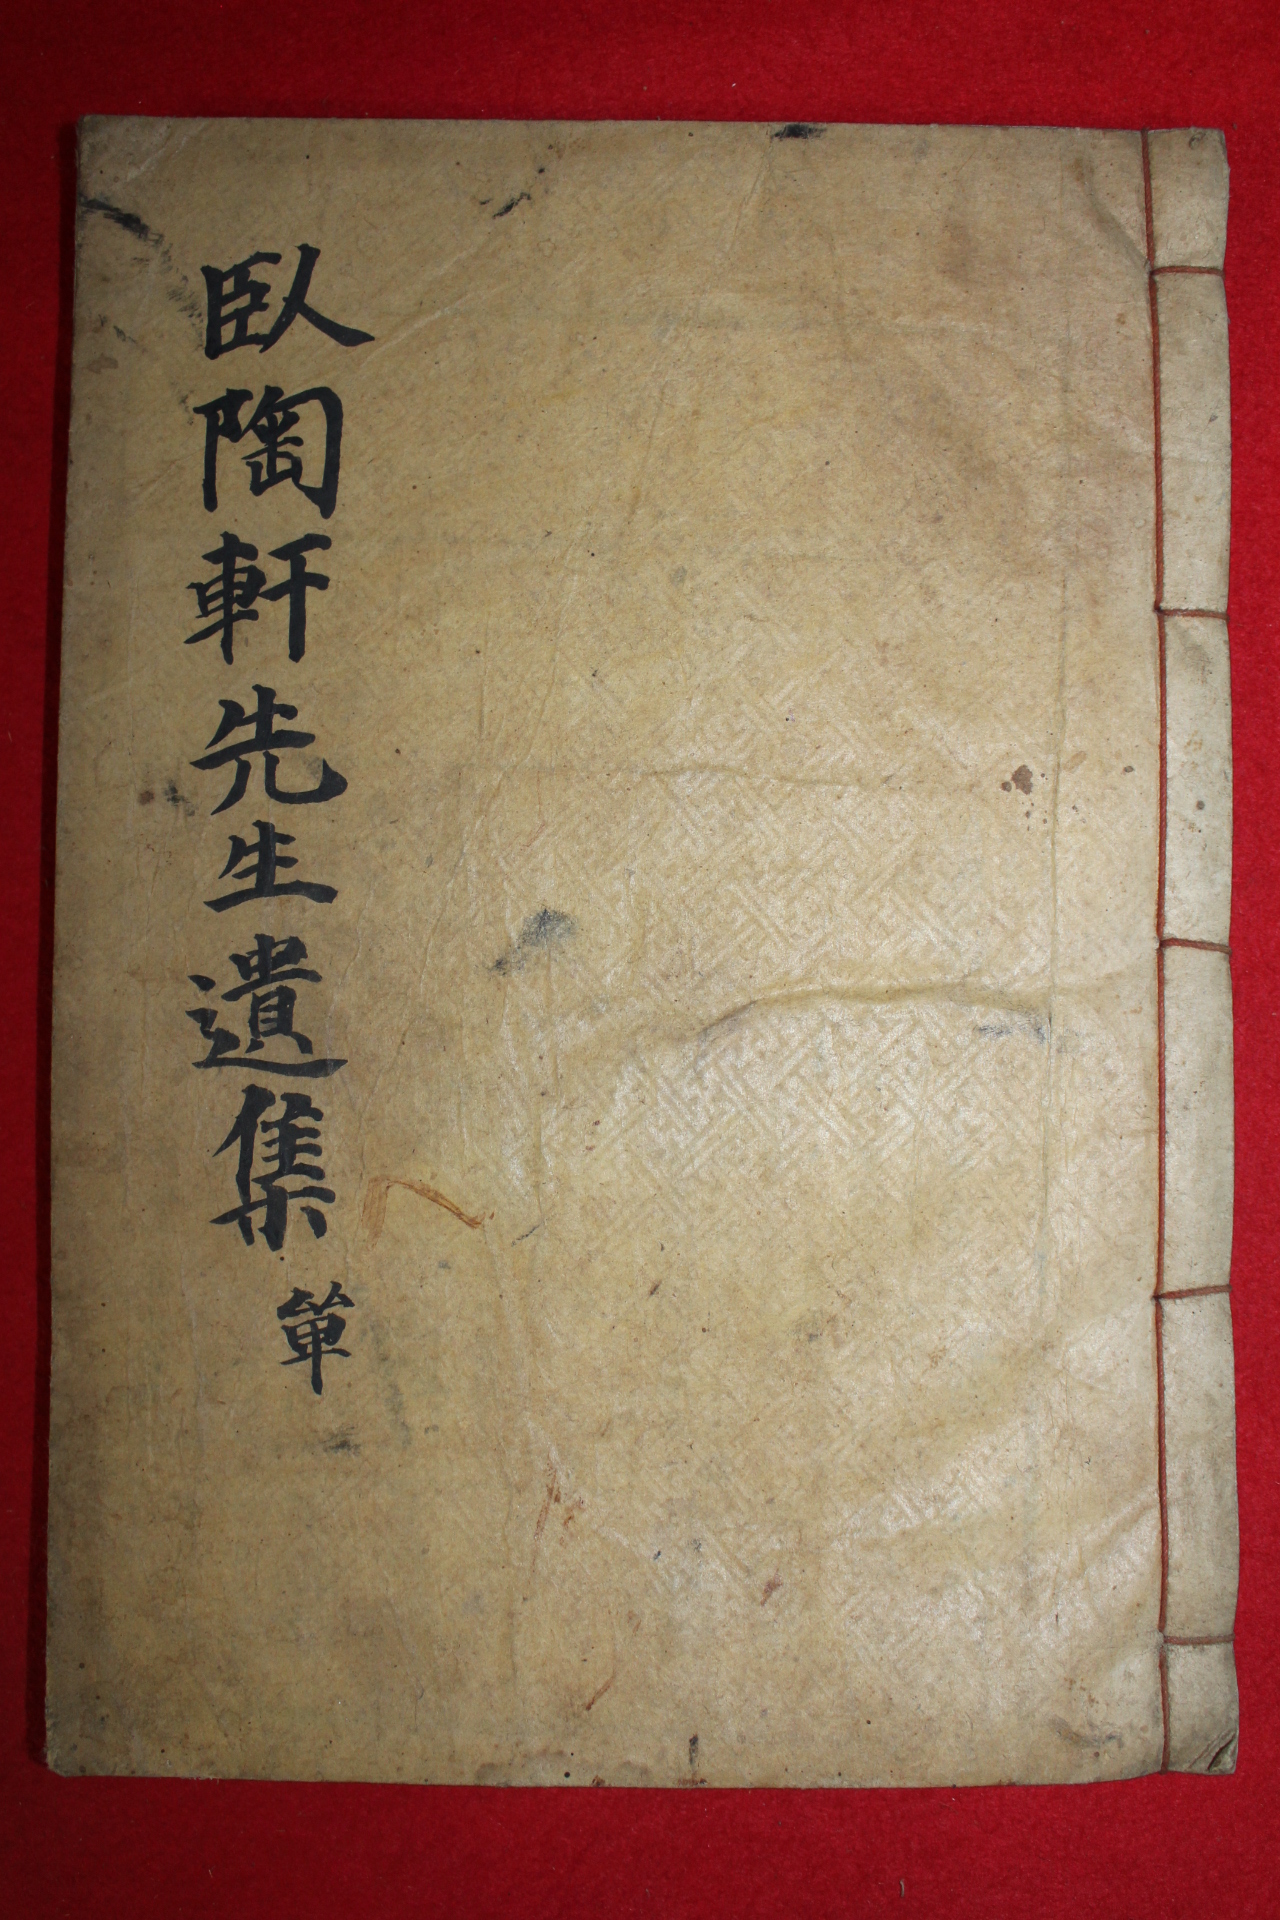 臥陶軒先生遺集 單